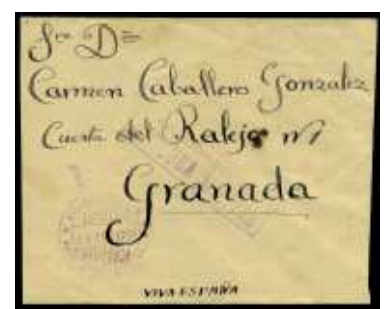 Sra Dª
Carmen Caballero Gonzalez
Cuesta del Ralejo nº 1
Granada
VIVA ESPAÑA